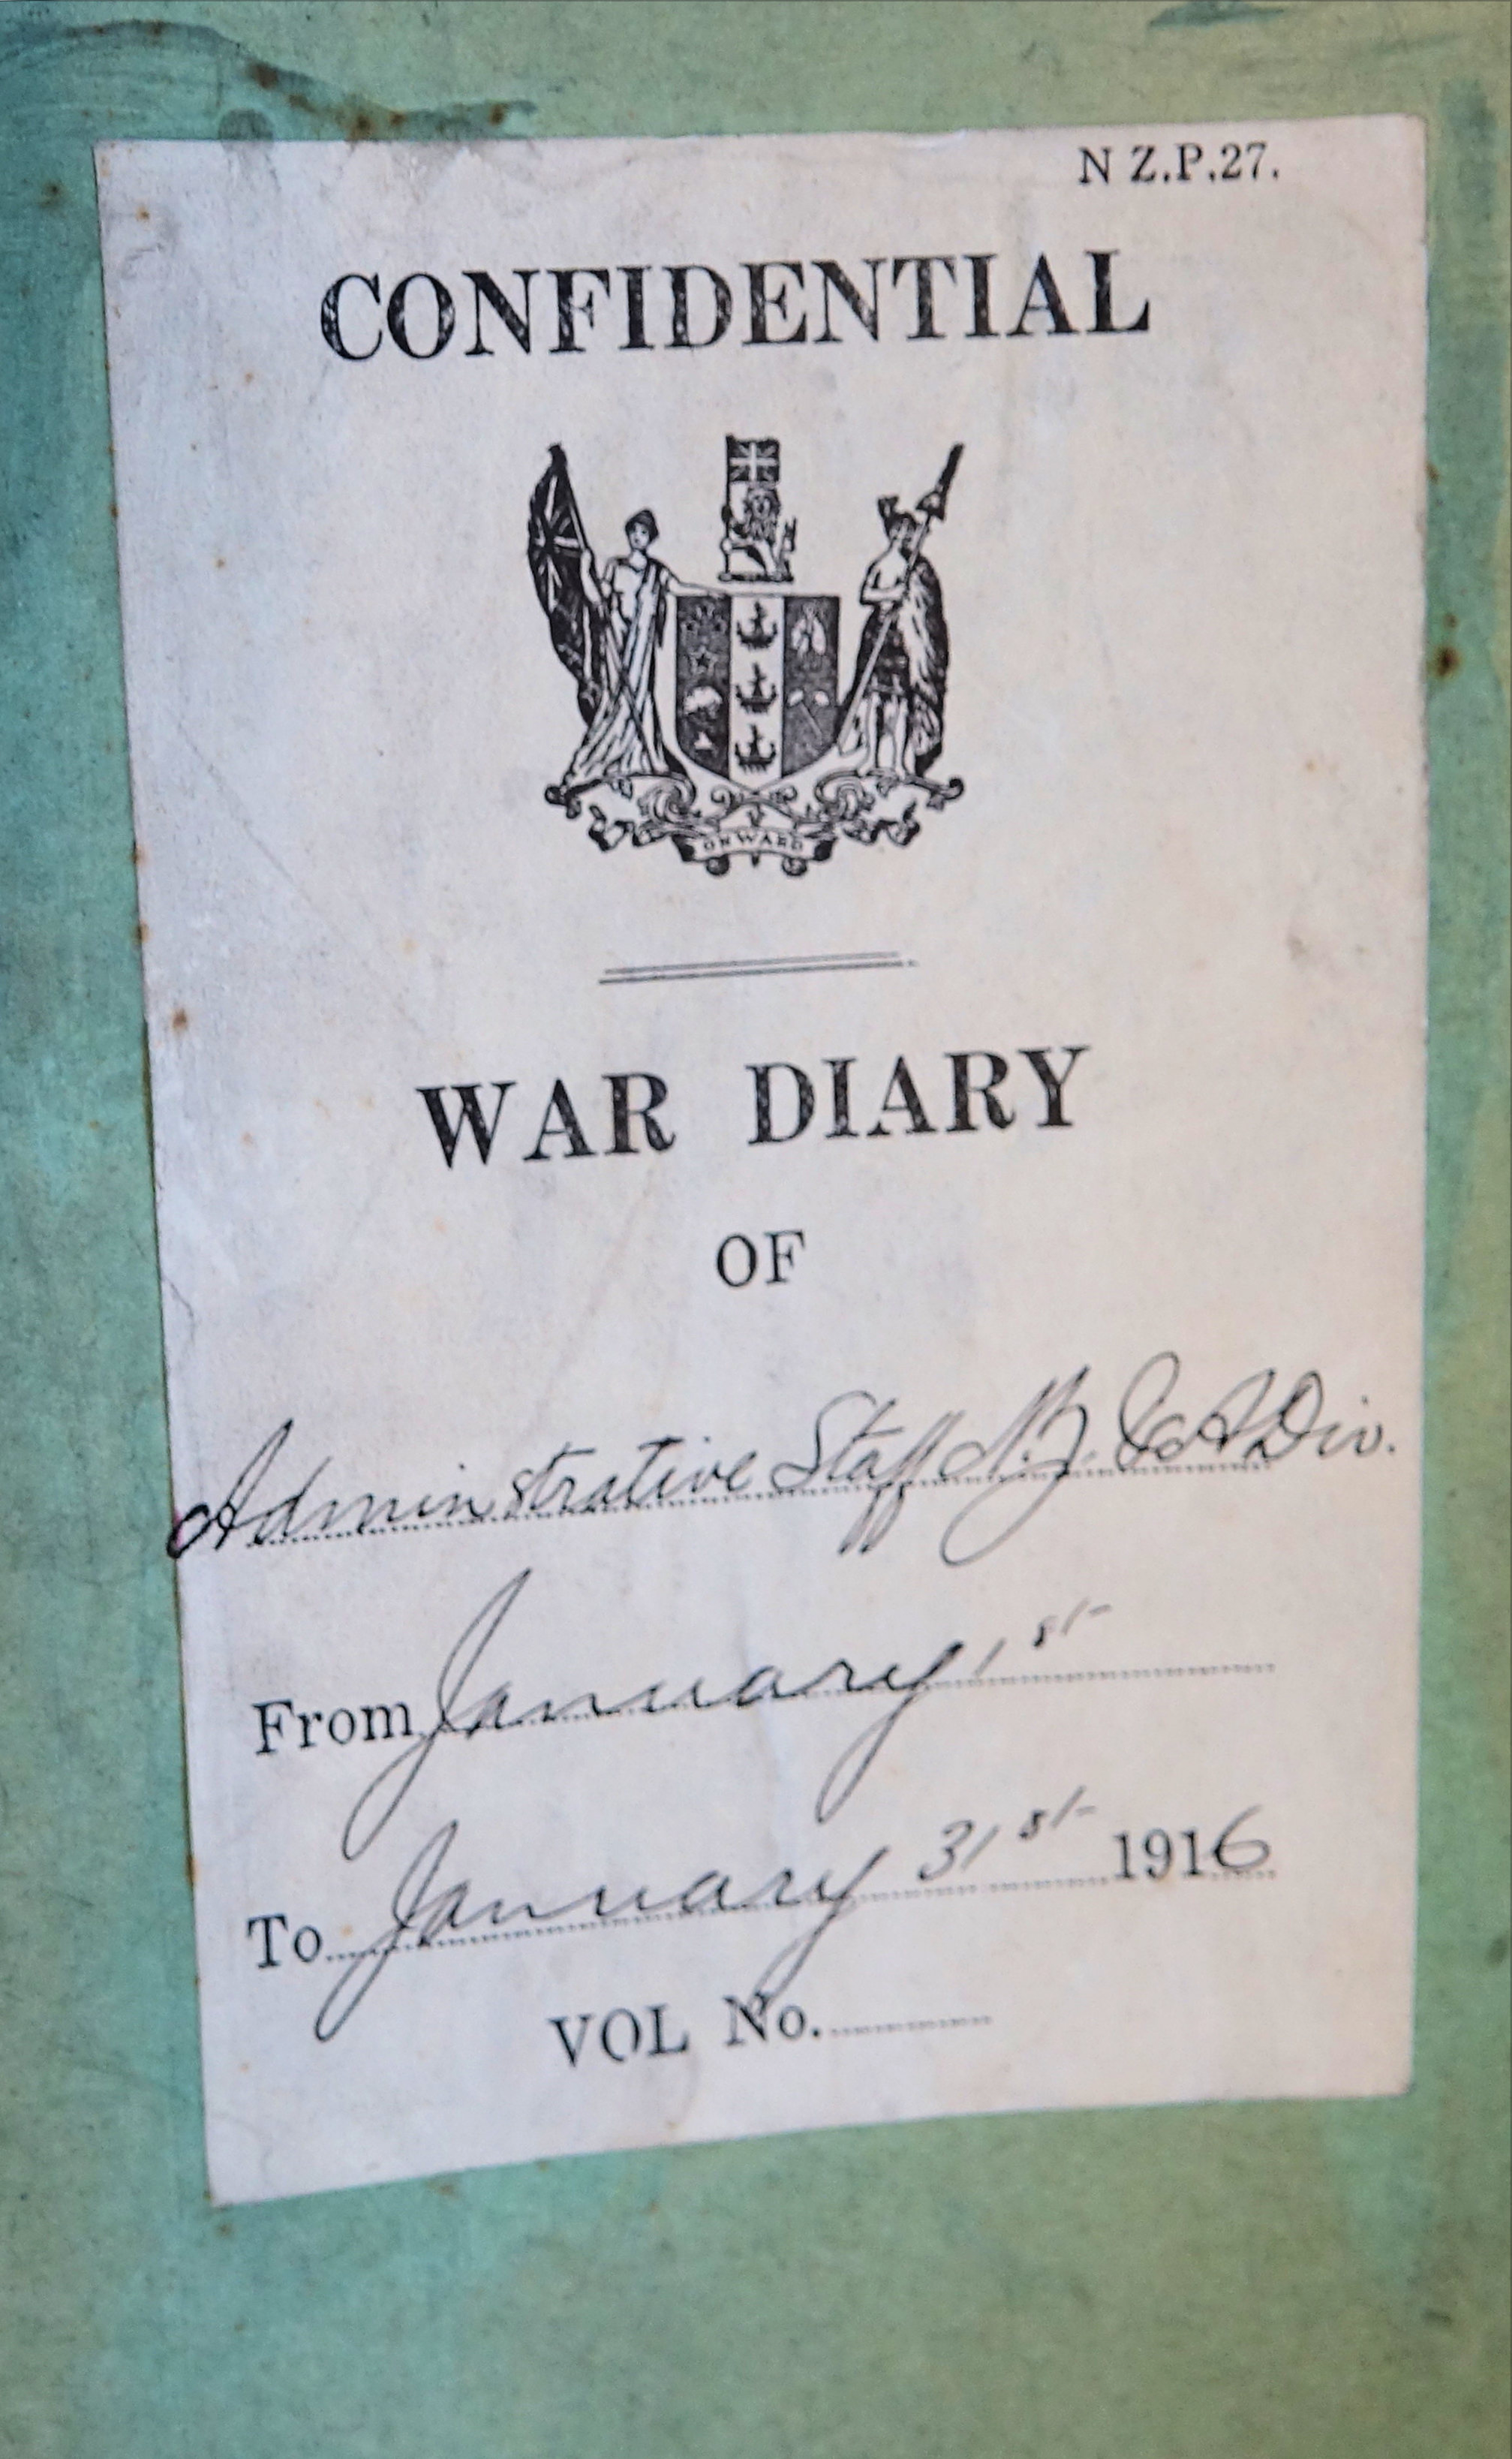 N Z.P.27.
CONFIDENTIAL
ONWARD
WAR DIARY
OF
Administrative Staff N.Z. & A Div.
From January 1st
To January 31st 1916
VOL No.